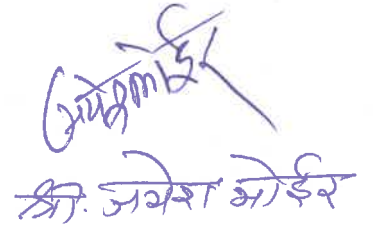 श्री. जयेश भोईर